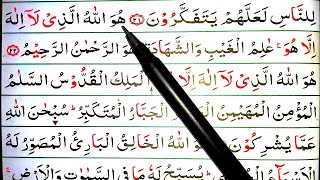 لِلنَّاسِ لَعَلَّهُمْ يَتَفَكَّرُوْنَ ﴿٢١﴾ هُوَ اللّٰهُ الَّذِيْ لَآ اِلٰهَ
اِلَّا هُوَ ۚ عٰلِمُ الْغَيْبِ وَالشَّهَادَةِ ۚ هُوَ الرَّحْمٰنُ الرَّحِيْمُ ﴿٢٢﴾
هُوَ اللّٰهُ الَّذِيْ لَآ اِلَّا الْمَلِكُ الْقُدُّوْسُ السَّلٰمُ
الْمُؤْمِنُ الْمُهَيْمِنُ الْجَبَّارُ الْمُتَكَبِّرُ ؕ سُبْحٰنَ اللّٰهِ
عَمَّا يُشْرِكُوْنَ هُوَ اللّٰهُ الْخَالِقُ الْبَارِئُ الْمُصَوِّرُ لَهُ
الْاَسْمَآءُ يُسَبِّحُ لَهٗ مَا فِي السَّمٰوٰتِ وَالْاَرْضِ ۚ